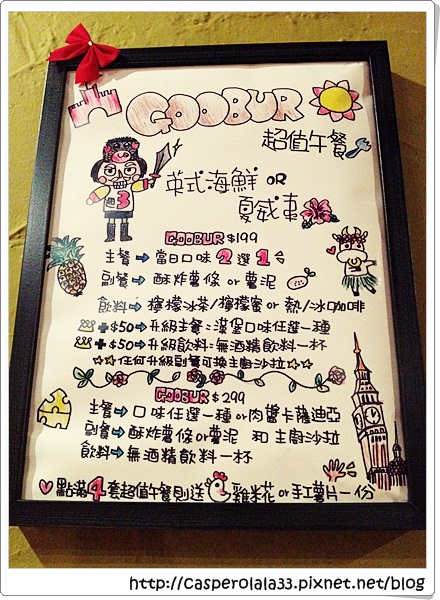 GOOBUR
超值午餐
週3
英式海鮮 OR
夏威夷
GOOBUR $199
主餐→當日口味2選1
副餐→酥炸薯條 or 薯泥
飲料→檸檬冰茶/檸檬蜜 or 熱/冰咖啡
+$50→升級主餐=漢堡口味任選一種
+$50→升級飲料=無酒精飲料一杯
☆☆任何升級副餐可換主廚沙拉☆☆
GOOBUR $299
主餐→口味任選一種 or 肉醬卡薩迪亞
副餐→酥炸薯條 or 薯泥 和 主廚沙拉
飲料→無酒精飲料一杯
點滿4套超值午餐則送 雞米花 or 手工薯片一份
http://casperolala33.pixnet.net/blog